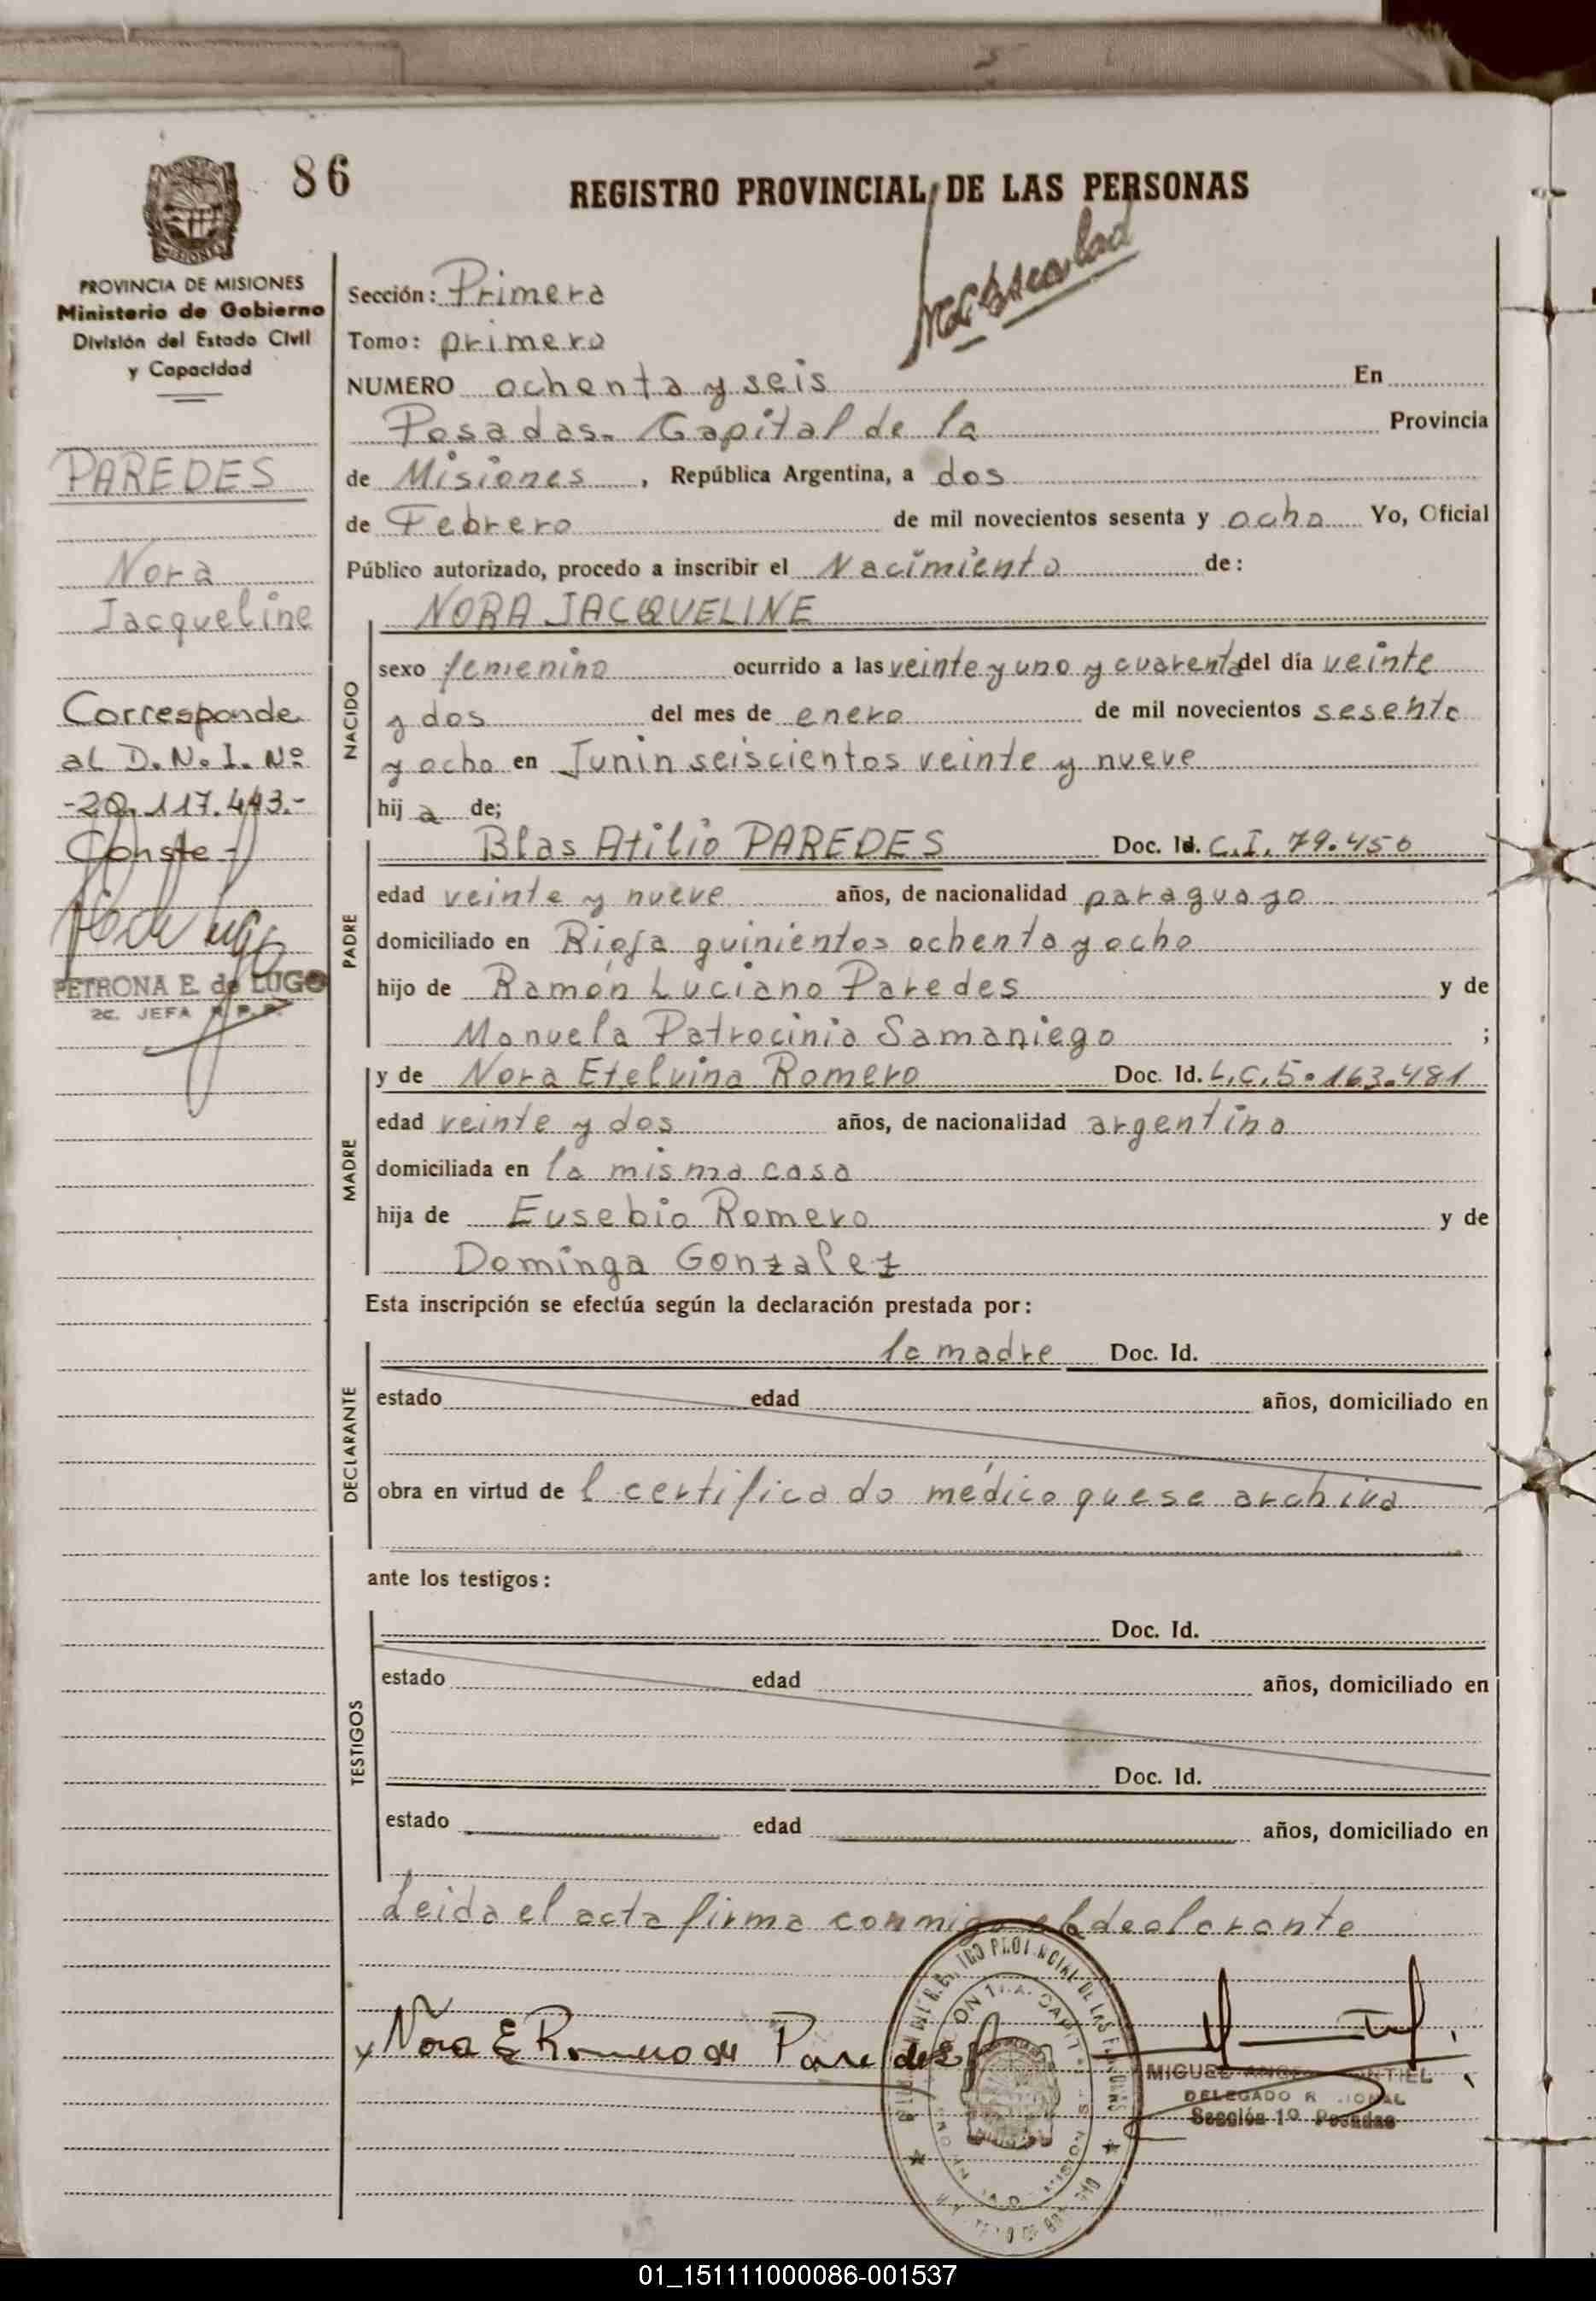 86
REGISTRO PROVINCIAL DE LAS PERSONAS
MISIONES
PROVINCIA DE MISIONES
Ministerio de Gobierno
División del Estado Civil
y Capacidad
PAREDES
Nora
Jacqueline
Corresponde
al D.N.I. Nº
-20.117.443.-
Conste-
PETRONA E. de LUGO
2c. JEFA R.P.P.
Sección: Primera
Tomo: primero
NUMERO ochenta y seis En
Posadas. Capital de la Provincia
de Misiones, República Argentina, a dos
de Febrero de mil novecientos sesenta y ocho Yo, Oficial
Público autorizado, procedo a inscribir el Nacimiento de:
NORA JACQUELINE
NACIDO
sexo femenino ocurrido a las veinte y uno y cuarenta del día veinte
y dos del mes de enero de mil novecientos sesenta
y ocho en Junin seiscientos veinte y nueve
hij a de;
PADRE
Blas Atilio PAREDES Doc. Id. C.I. 79.450
edad veinte y nueve años, de nacionalidad paraguayo
domiciliado en Rioja quinientos ochenta y ocho
hijo de Ramón Luciano Paredes y de
Manuela Patrocinia Samaniego ;
MADRE
y de Nora Etelvina Romero Doc. Id. L.C. 5.163.481
edad veinte y dos años, de nacionalidad argentina
domiciliada en la misma casa
hija de Eusebio Romero y de
Dominga Gonzalez
Esta inscripción se efectúa según la declaración prestada por:
DECLARANTE
la madre Doc. Id.
estado edad años, domiciliado en
obra en virtud de l certificado médico que se archiva
ante los testigos:
TESTIGOS
Doc. Id.
estado edad años, domiciliado en
Doc. Id.
estado edad años, domiciliado en
Leida el acta firma conmigo el declarante
x Nora E Romero de Paredes
MIGUEL ANGEL MONTIEL
DELEGADO REGIONAL
Sección 1º Posadas
01_151111000086-001537